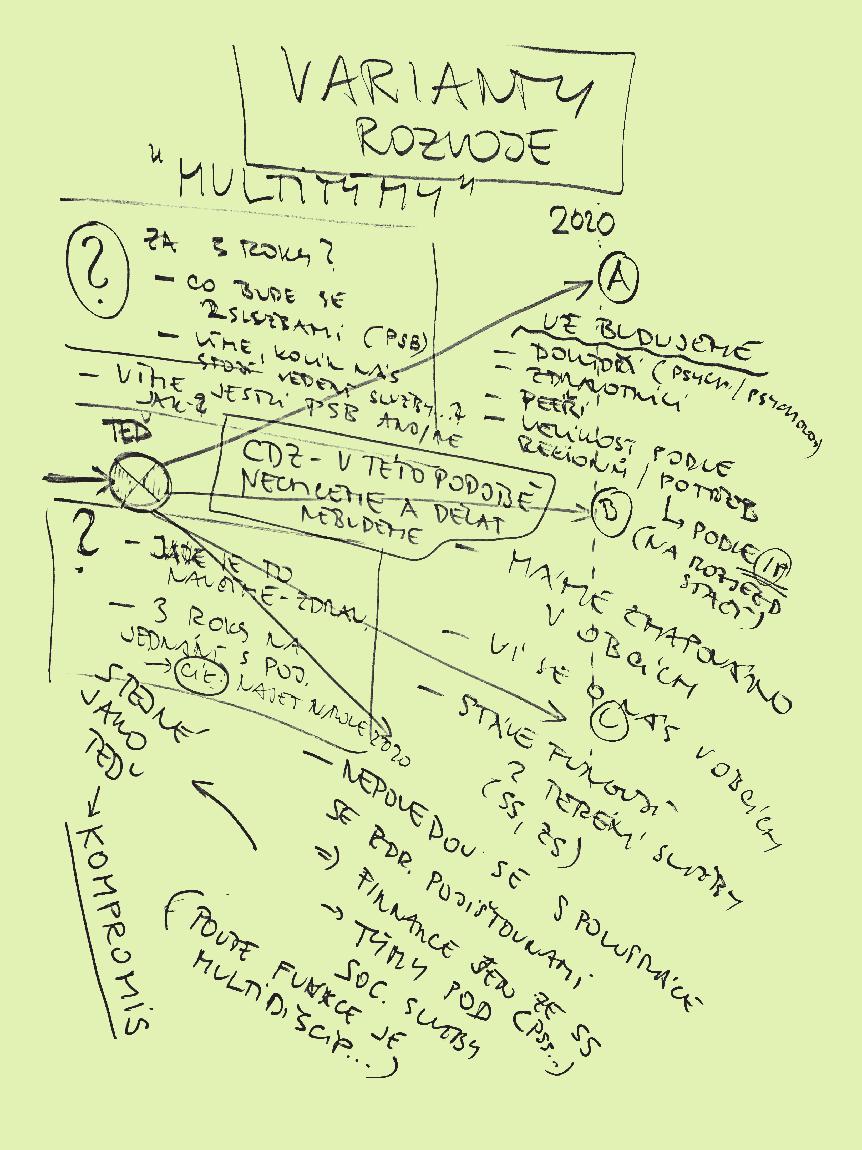 VARIANTY
ROZVOJE
"MULTITÝMY"
2020
?
ZA 3 ROKY?
- CO BUDE SE
SLUŽBAMI (PSB)
- VÍME, KOLIK NÁS
VEDENÍ SLUŽBY..?
- VÍME JESTLI PSB ANO/NE
JAK?
TEĎ
A
UŽ BUDUJEME
- DOKTOŘI (PSYCH/PSYCHOLOG)
- ZDRAVOTNÍCI
- PEEŘI
- VELIKOST PODLE
REGIONŮ / POTŘEB
↳ PODLE
(NA ROZJEZD
STAČÍ)
CDZ - V TÉTO PODOBĚ
NECHCEME A DĚLAT
NEBUDEME
B
- MÁME ZMAPOVÁNO
V OBCÍCH
- VÍ SE O NÁS V OBCÍCH
- STÁLE FUNGUJÍ
2 TERÉNÍ SLUŽBY
(SS, ZS)
C
?
- JE TO
- ZDRAV.
- 3 ROKY NA
JEDNÁNÍ S POJ.
→ NAJET 2020
STEJNĚ
JAKO
TEĎ
→ KOMPROMIS
- NEPOVEDOU SE SPOLUPRÁCE
SE ZDR. POJIŠŤOVNAMI
⇒ FINANCE JEN ZE SS
→ TÝMY POD (PSS...)
SOC. SLUŽBY
(POUZE FUNKCE JE
MULTIDISCIP...)